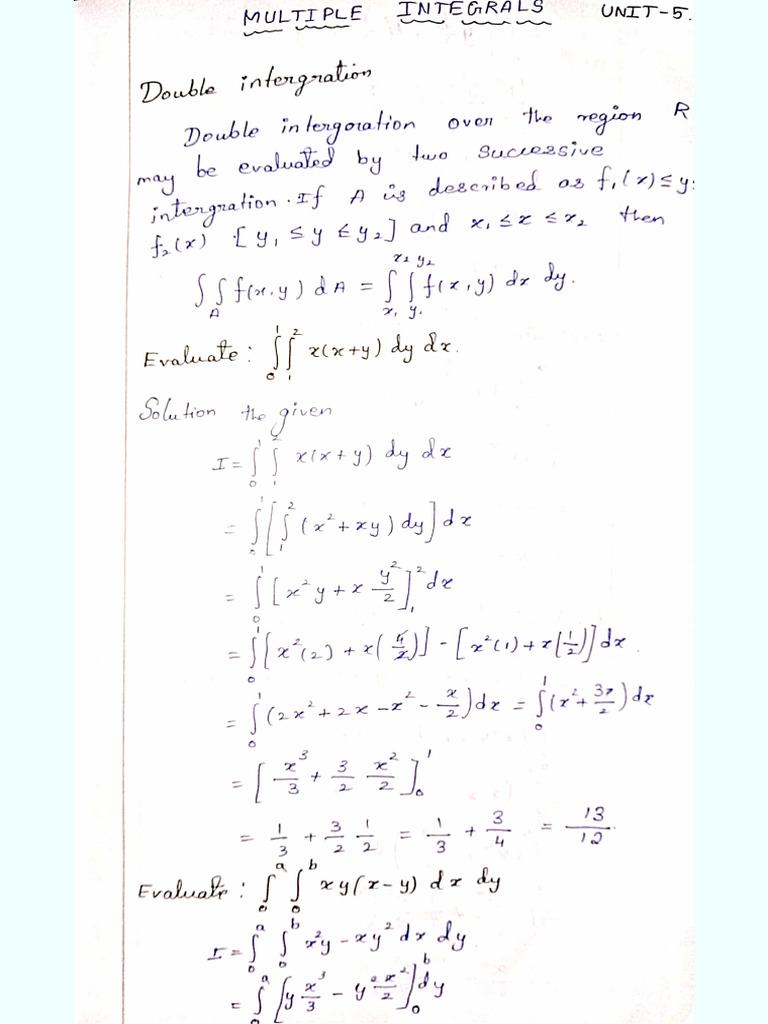 MULTIPLE INTEGRALS UNIT-5.
Double intergration
Double intergoration over the region R
may be evaluated by two successive
intergration. If A is described as f₁(x) ≤ y
f₂(x) [y₁ ≤ y ≤ y₂] and x₁ ≤ x ≤ x₂ then
∫∫_A f(x,y) dA = ∫_{x₁}^{x₂} ∫_{y₁}^{y₂} f(x,y) dx dy.
Evaluate: ∫_0^1 ∫_1^2 x(x+y) dy dx.
Solution the given
I = ∫_0^1 ∫_1^2 x(x+y) dy dx
= ∫_0^1 [∫_1^2 (x²+xy) dy] dx
= ∫_0^1 [x²y + x y²/2]_1^2 dx
= ∫_0^1 [x²(2) + x(4/2)] - [x²(1) + x(1/2)] dx.
= ∫_0^1 (2x² + 2x - x² - x/2) dx = ∫_0^1 (x² + 3x/2) dx
= [x³/3 + 3/2 x²/2]_0^1
= 1/3 + 3/2 1/2 = 1/3 + 3/4 = 13/12.
Evaluate: ∫_0^a ∫_0^b xy(x-y) dx dy
I = ∫_0^a ∫_0^b x²y - xy² dx dy
= ∫_0^a [y x³/3 - y² x²/2]_0^b dy